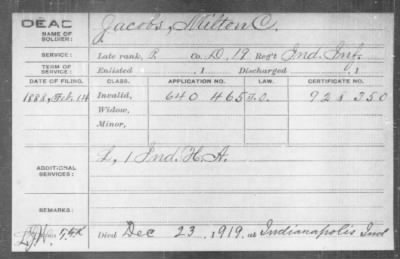 DEAC
NAME OF SOLDIER: Jacobs, Milton C.
SERVICE: Late rank, P. Co. D, 19 Reg't Ind. Inf.
TERM OF SERVICE: Enlisted , 1 Discharged , 1
DATE OF FILING. CLASS. APPLICATION NO. LAW. CERTIFICATE NO.
1888, Feb. 14 Invalid, 640 465 928 350
Widow,
Minor,
ADDITIONAL SERVICES: L, 1 Ind. H. A.
REMARKS:
Died Dec 23, 1919, at Indianapolis Ind